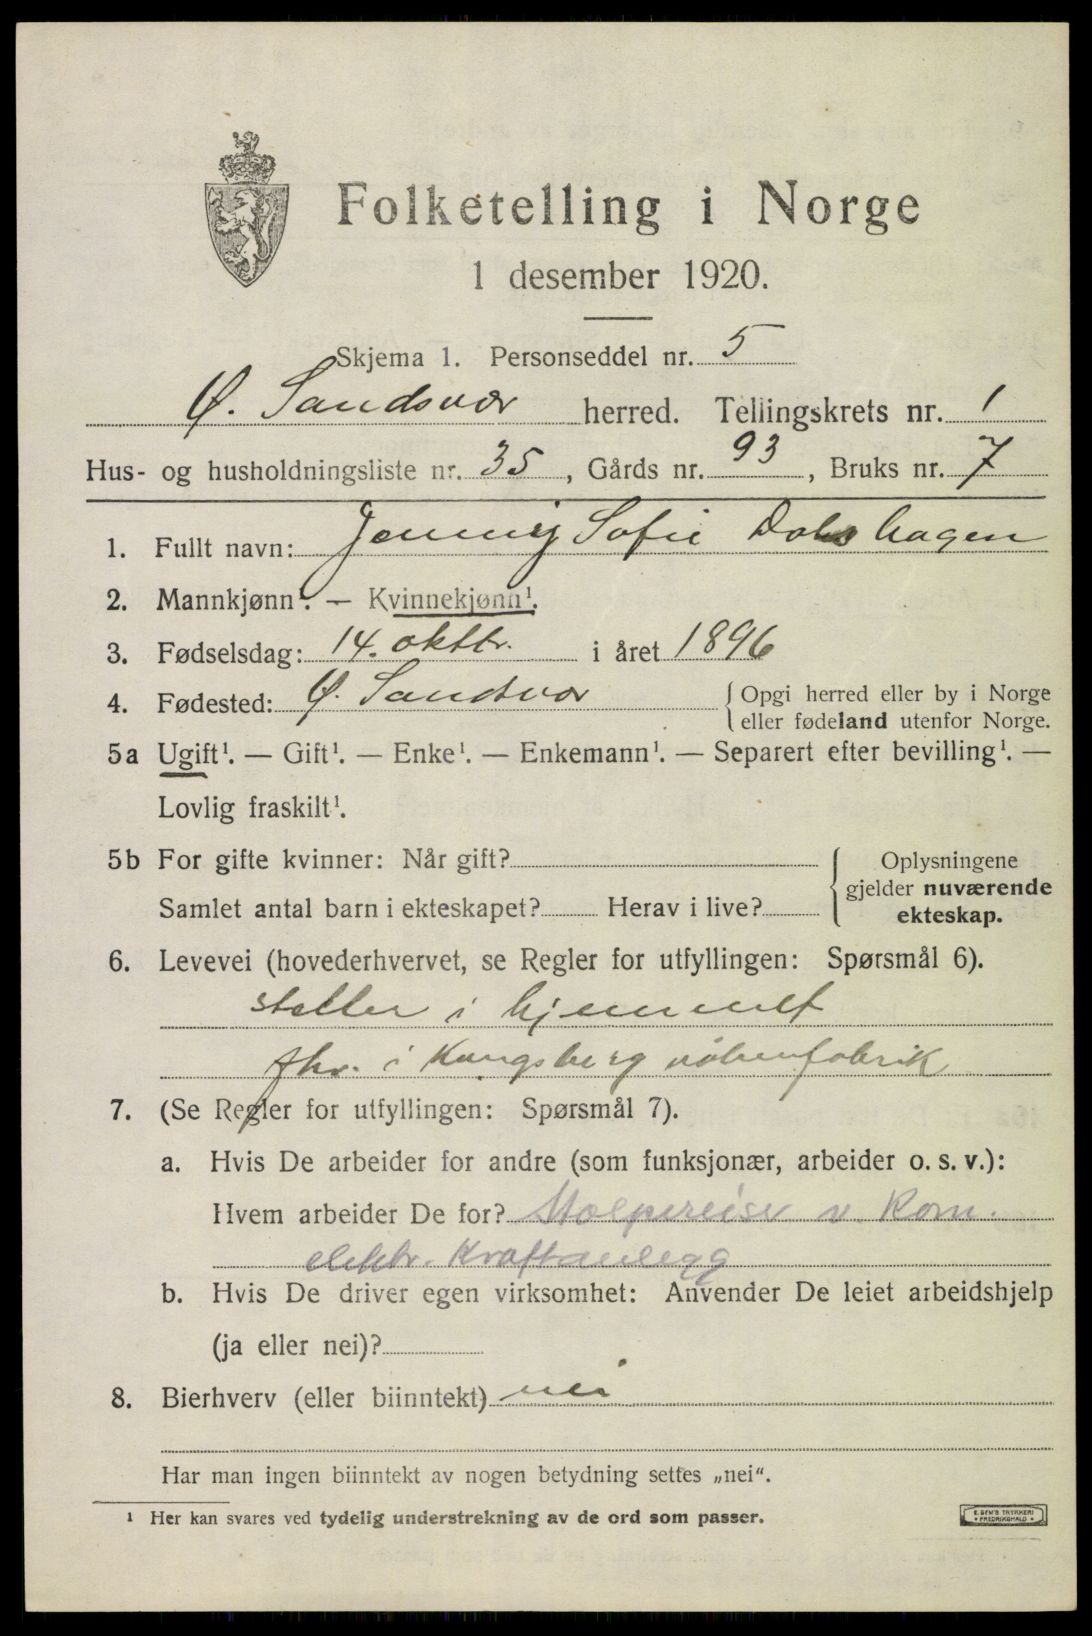 Folketelling i Norge
1 desember 1920.
Skjema 1. Personseddel nr. 5
Ø. Sandsvær herred. Tellingskrets nr. 1
Hus- og husholdningsliste nr. 35, Gårds nr. 93, Bruks nr. 7
1. Fullt navn: Jenny Sofie Dalshagen
2. Mannkjønn¹. — Kvinnekjønn¹.
3. Fødselsdag: 14. oktbr. i året 1896
4. Fødested: Ø. Sandsvær { Opgi herred eller by i Norge
eller fødeland utenfor Norge.
5a Ugift¹. — Gift¹. — Enke¹. — Enkemann¹. — Separert efter bevilling¹. —
Lovlig fraskilt¹.
5b For gifte kvinner: Når gift? { Oplysningene
gjelder nuværende
Samlet antal barn i ekteskapet? Herav i live? ekteskap.
6. Levevei (hovederhvervet, se Regler for utfyllingen: Spørsmål 6).
steller i hjemmet
fhv. i Kongsberg våbenfabrik
7. (Se Regler for utfyllingen: Spørsmål 7).
a. Hvis De arbeider for andre (som funksjonær, arbeider o. s. v.):
Hvem arbeider De for? Stolpereiser v. Kom.
elektr. Kraftanlegg
b. Hvis De driver egen virksomhet: Anvender De leiet arbeidshjelp
(ja eller nei)?
8. Bierhverv (eller biinntekt) nei
Har man ingen biinntekt av nogen betydning settes „nei“.
¹ Her kan svares ved tydelig understrekning av de ord som passer.
E. SEM'S TRYKKERI
FREDRIKSHALD